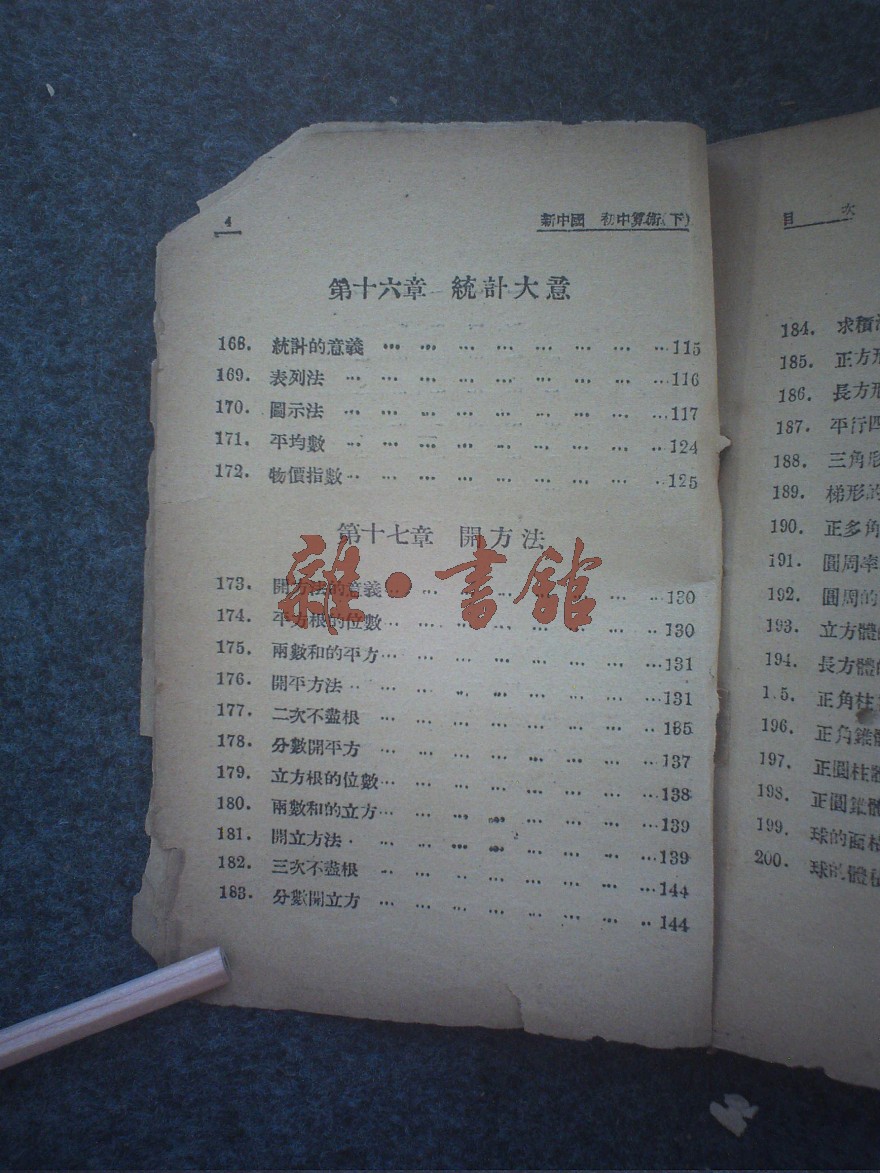 4 新中國 初中算術(下)
第十六章 統計大意
168. 統計的意義 … … … … … … … …115
169. 表列法 … … … … … … … … …116
170. 圖示法 … … … … … … … … …117
171. 平均數 … … … … … … … … …124
172. 物價指數… … … … … … … … …125
第十七章 開方法
173. 開方法的意義… … … … … … … …130
174. 平方根的位數… … … … … … … …130
175. 兩數和的平方… … … … … … … …131
176. 開平方法… … … … … … … … …131
177. 二次不盡根 … … … … … … … …135
178. 分數開平方 … … … … … … … …137
179. 立方根的位數… … … … … … … …138
180. 兩數和的立方… … … … … … … …139
181. 開立方法… … … … … … … … …139
182. 三次不盡根 … … … … … … … …144
183. 分數開立方 … … … … … … … …144
雜·書館
目 次
184. 求積
185. 正方形
186. 長方形
187. 平行四
188. 三角形
189. 梯形的
190. 正多角
191. 圓周率
192. 圓周的
193. 立方體的
194. 長方體的
1.5. 正角柱
196. 正角錐體
197. 正圓柱體
198. 正圓錐體
199. 球的面積
200. 球的體積